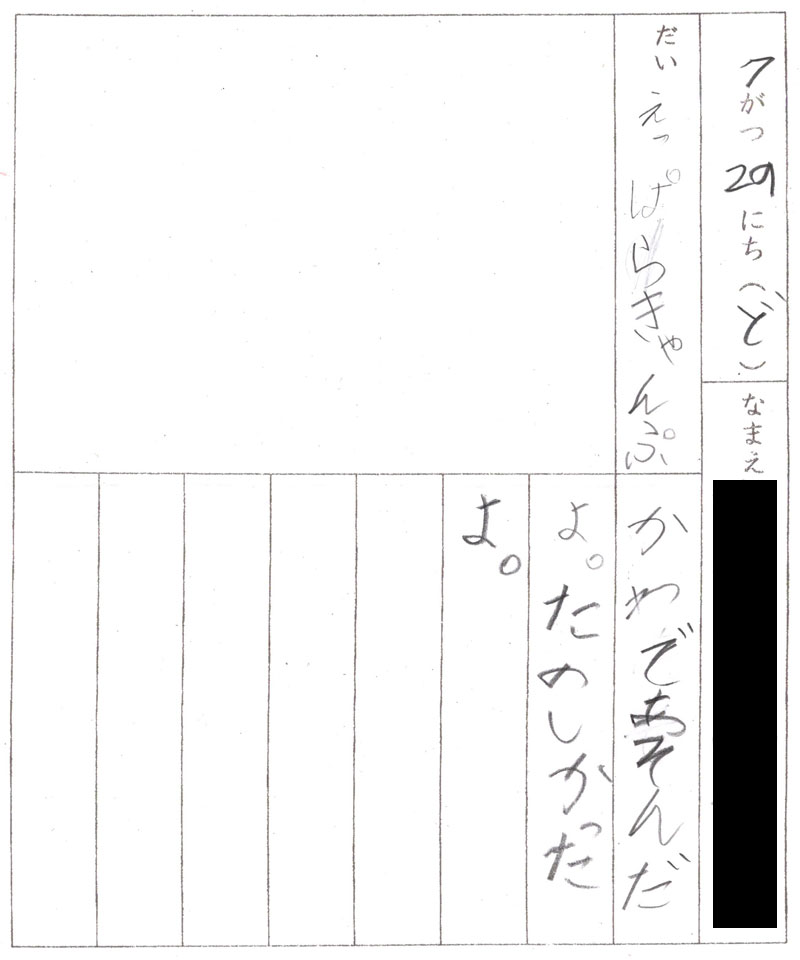 7がつ29にち（ど）
なまえ
だい えっぱらきゃんぷ
かわであそんだ
よ。たのしかった
よ。